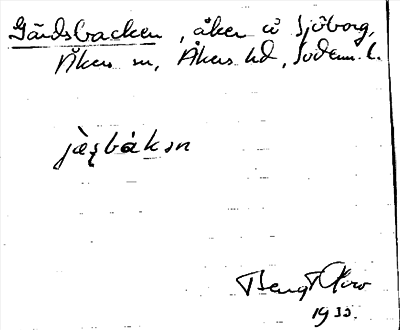 Gärdsbacken, åker å Sjöborg,
Åkers sn, Åkers hd, Söderm. l.
jæ̀ʂbákən
Bengt
1935.